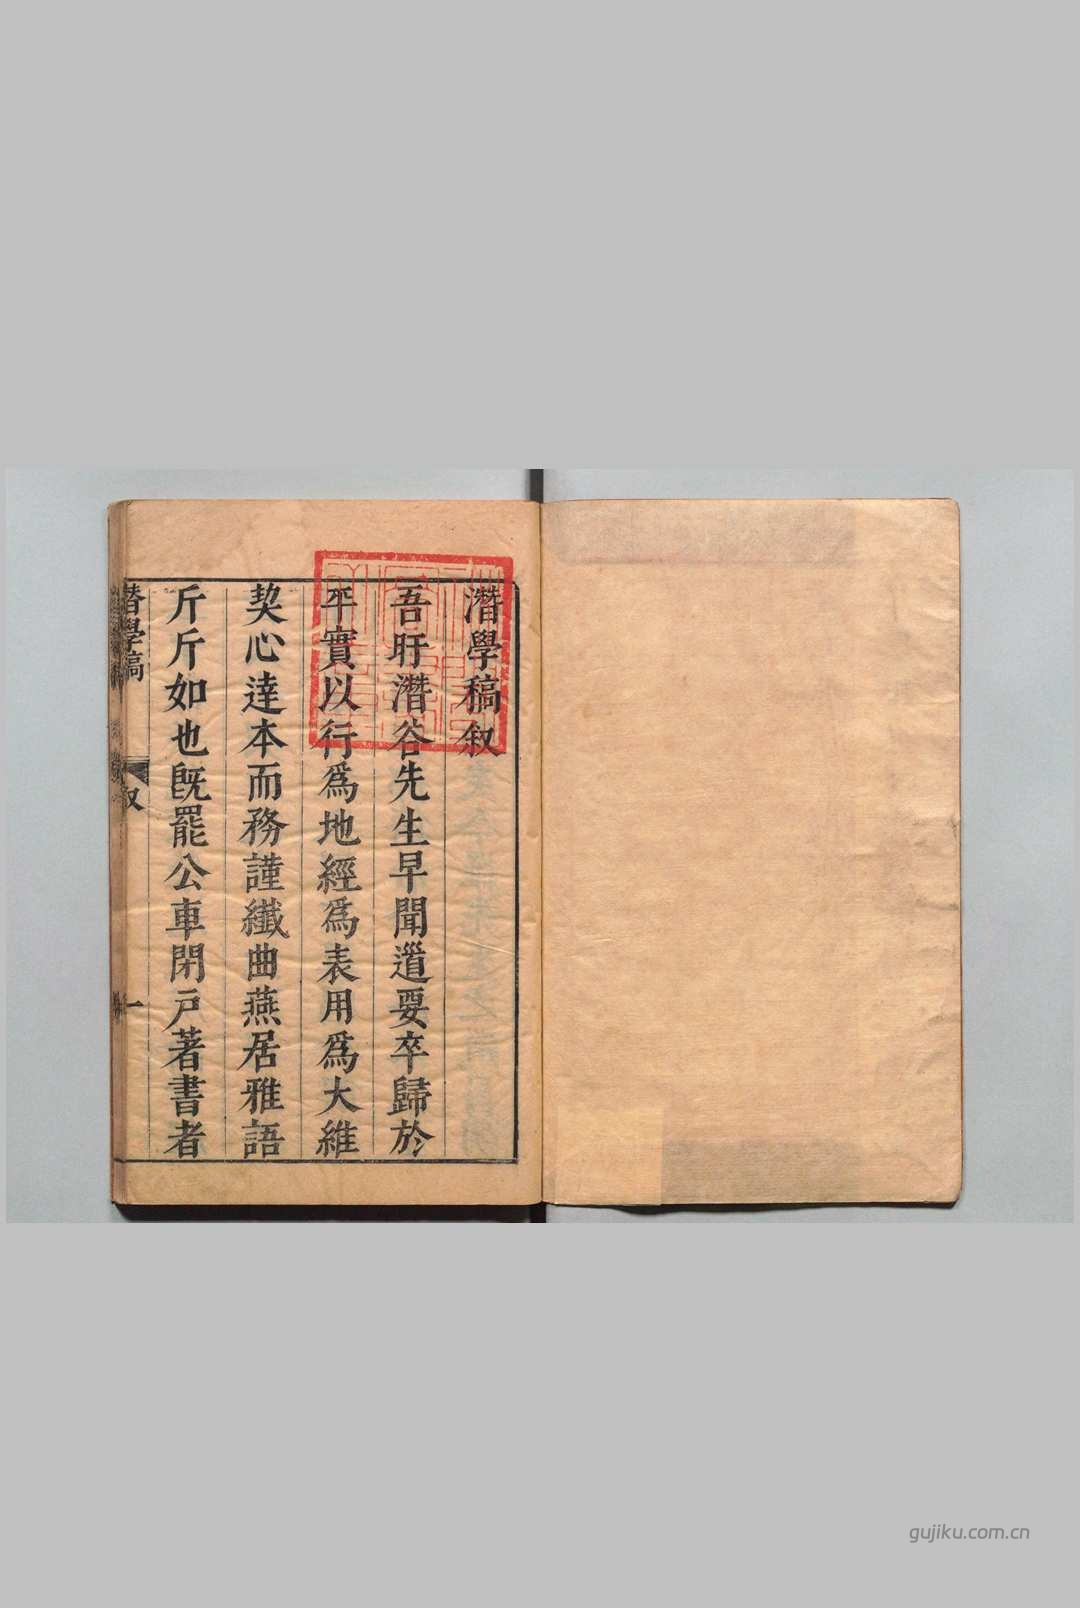 潛學稿叙
吾盱潛谷先生早聞道要卒歸於
平實以行爲地經爲表用爲大維
契心達本而務謹纎曲燕居雅語
斤斤如也旣罷公車閉戶著書者
潛學稿 叙 一
gujiku.com.cn